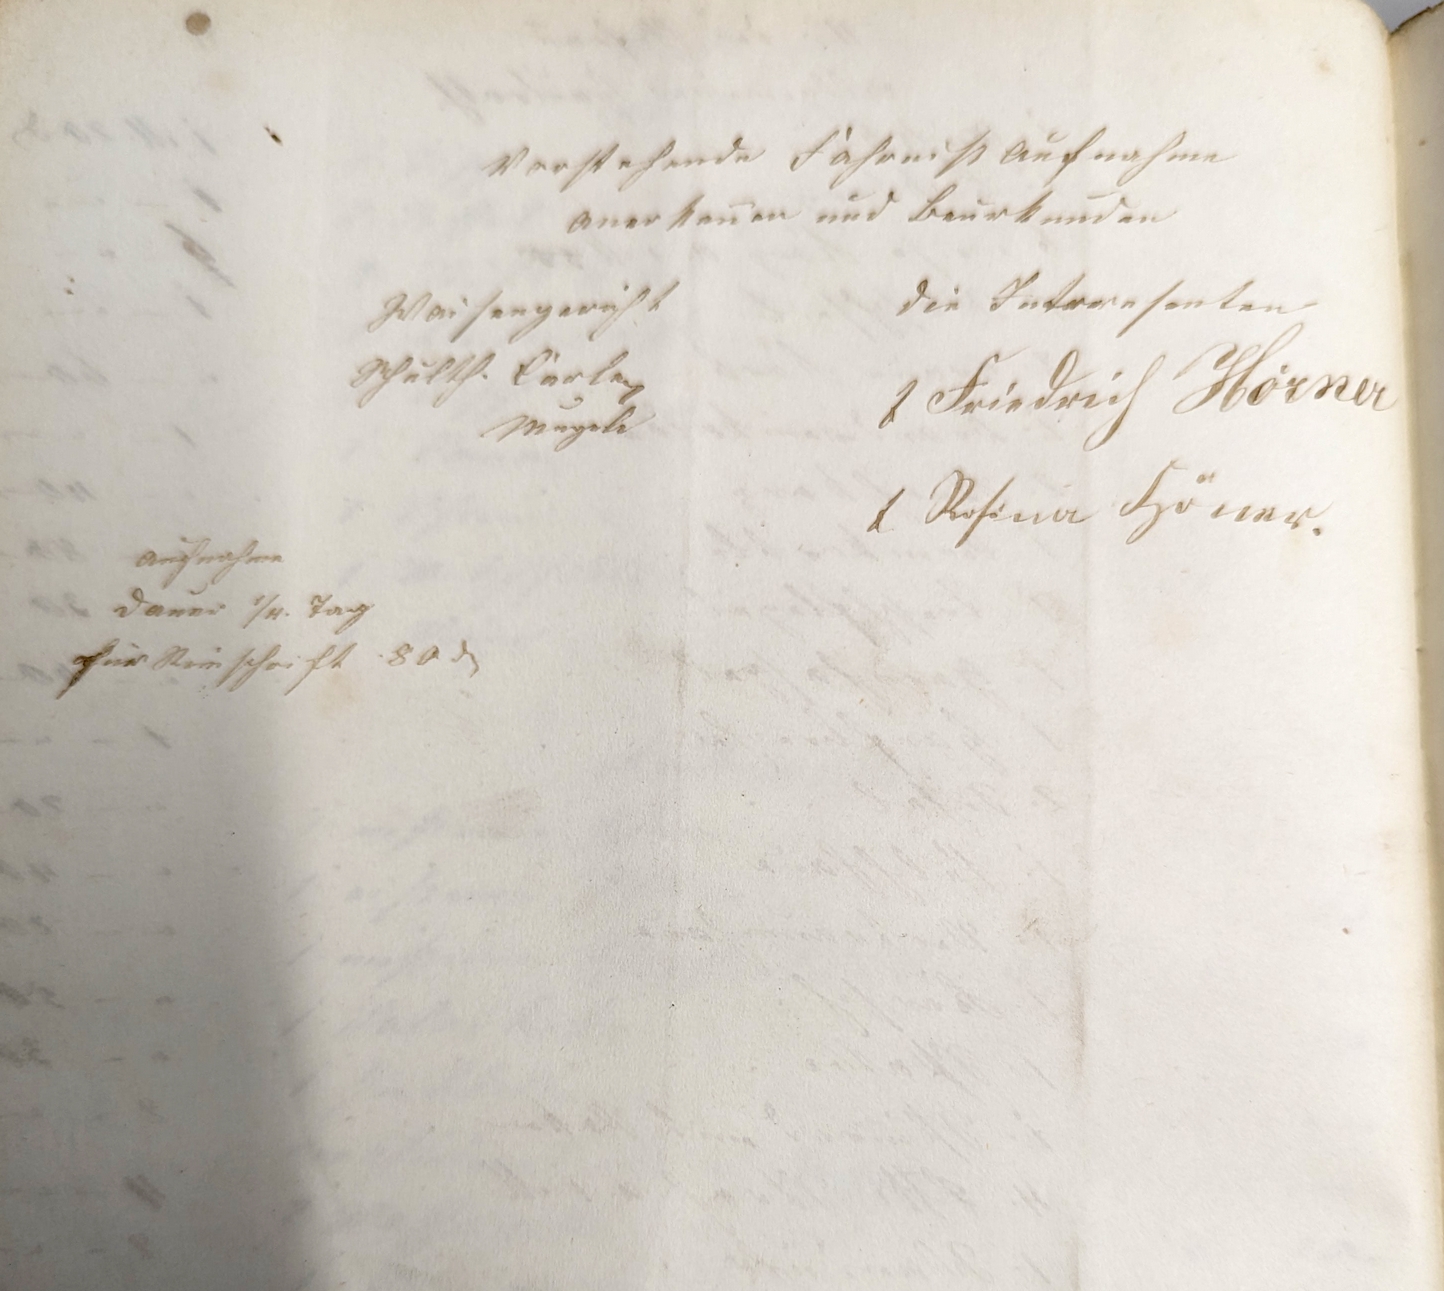 Vorstehende Fahrniß Aufnahme
anerkennen und beurkunden
Waisengericht
Schulth.
Mugele
die Interresenten
t Friedrich Hörner
t Rosina Höner.
Aufnahme
Dauer 1/4. Tag
für Reinschrift 80 d